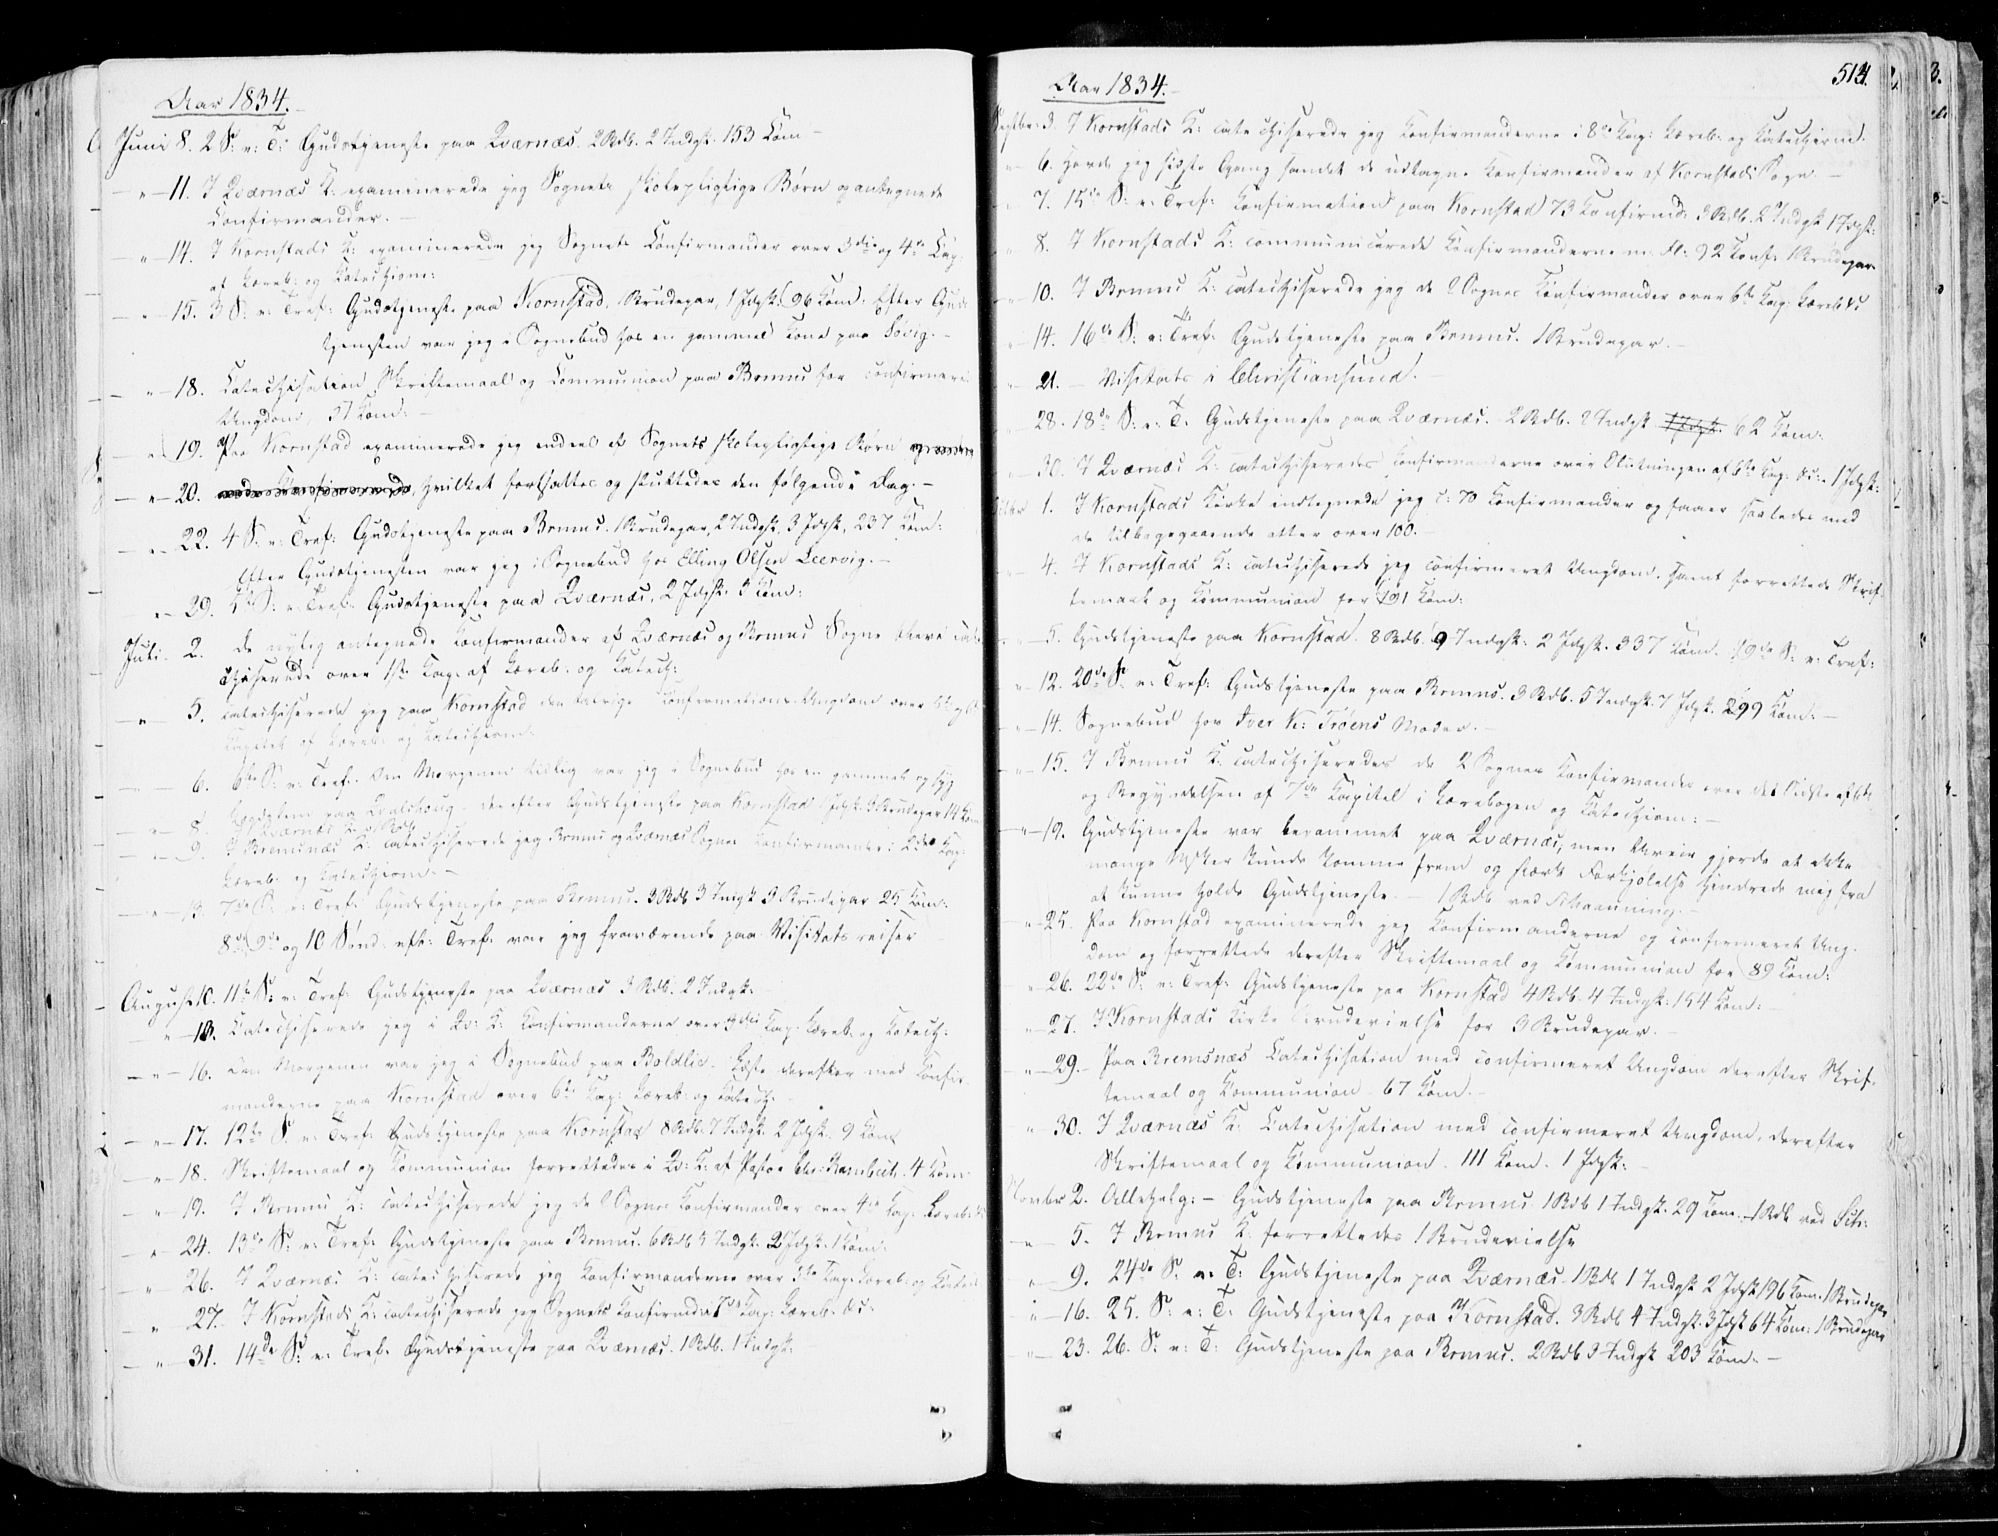 Aar 1834.
Juni 8. 2 S: e: T: Gudstjeneste paa Qværnæs. 2 Rdb. 2 Indgk. 153 Com –
" – 11. I Qværnæs K: examinerede jeg Sognets skolepligtige Børn og antegnede
Confirmander. –
" – 14. I Kornstads K: examinerede jeg Sognets Confirmander over 3die og 4de Cap.
af Læreb: og Katechism:
" – 15. 3 S: e: Tref: Gudstjeneste paa Kornstad, Brudepar, 1 Jdgk. 96 Com: Efter Guds
tjenesten var jeg i Sognebud hos en gammel Kone paa
" – 18. Catechisation Skriftemaal og Communion paa Bremsnæs for confirmeret
Ungdom, 51 Com: –
" – 19. Paa Kornstad examinerede jeg endeel af Sognets skolepligtige Børn
" – 20. hvilket fortsattes og sluttedes den følgende Dag. –
" – 22. 4 S: e: Tref: Gudstjeneste paa Bremsn. 1 Brudepar, 2 Indgk. 3 Jdgk, 237 Com:
Efter Gudstjenesten var jeg i Sognebud hos Elling Olsen Leervig. –
" – 29. 5te S: e: Tref: Gudstjeneste paa Qværnæs. 2 Jdgk. 5 Com:
Juli. 2. De nylig antegnede Confirmander af Qværnæs og Bremsn Sogne bleve cate
chiserede over 1ste Cap. af Læreb: og Katech:
" 5. Catechiserede jeg paa Kornstad den Confirmations Ungdom over
Capitel af Læreb. og Katechism:
6. 6te S: e: Tref: Om Morgenen tidlig var jeg i Sognebud hos en gammel og syg
paa derefter Gudstjeneste paa Kornstad 1 Jdgk. Brudepar 14 Com
" 8. I Qværnæs K.
" 9. I Bremsnæs K: catechiserede jeg Bremsn og Qværnæs Sogne Confirmander i 2det Cap:
Læreb: og Katechism: –
" – 13. 7de S. e: Tref: Gudstjeneste paa Bremsn. 3 Rdb 3 Ingk 3 Brudepar 25 Com:
8de 9de og 10 Sønd: eft: Tref: var jeg fraværende paa Visitats reiser
August 10. 11te S: e: Tref: Gudstjeneste paa Qværnæs 3 Rdb. 2 Indgk:
" – 13. Catechiserede jeg i Qv: K: Confirmanderne over 3die Cap: Læreb. og Katech:
" – 16. Om Morgenen var jeg i Sognebud paa Boldlie. læste derefter med Confir-
manderne paa Kornstad over 6te Cap: Læreb. og Katech: –
" – 17. 12te S. e: Tref: Gudstjeneste paa Kornstad 8 Rdb. 7 Indgk. 2 Jdgk. 9 Com
" – 18. Skriftemaal og Communion forrettedes i Qv: K: af Pastor Chr: Rambech. 4 Com:
" – 19. I Bremsn K: catechiserede jeg de 2 Sognes Confirmander over 4de Cap. Læreb.
" – 24. 13de S: e: Tref: Gudstjeneste paa Bremsn. 6 Rdb 5 Indgk: 2 Jdgk. 1 Com:
" 26. I Qværnæs K: catechiserede jeg Confirmanderne over 5te Cap: Læreb. og Katech
" 27. I Kornstads K: catechiserede jeg Sognets Confirmd: i 7de Cap: Læreb. &c:
" – 31. 14de S: e: Tref. Gudstjeneste paa Qværnæs. 1 Rdb. 1 Indgk:
Aar 1834. –
514.
Septbr. 3. I Kornstads K: catechiserede jeg Confirmanderne i 8de Cap: Læreb. og Katechism.
" 6. Havde jeg sidste Gang samlet de udtagne Confirmander af Kornstads Sogn. –
7. 15de S: e: Tref: Confirmation paa Kornstad 73 Confirmd: 3 Rdb. 2 Indgk 17 Jdgk:
" 8. I Kornstads K: communicerede Confirmanderne m. fl: 92 Conf: 1 Brudepar
10. I Bremsn K: catechiserede jeg de 2 Sognes Confirmander over 6te Cap. Læreb &c
14. 16de S: e: Tref: Gudstjeneste paa Bremsn. 1 Brudepar. –
21. – Visitats i Christiansund.
28. 18de S: e: T: Gudstjeneste paa Qværnæs. 2 Rdb. 2 Indgk 1 Jdgk. 62 Com:
30. I Qværnæs K: catechiseredes Confirmanderne over Slutningen af 6te Cap. &c: 1 Jdgk:
Octbr 1. I Kornstads Kirke indtegnede jeg c: 70 Confirmander og faaer saaledes med
de tilbagegaaende atter over 100. –
4. I Kornstads K: catechiserede jeg confirmeret Ungdom, samt forrettede Skrif-
temaal og Communion for 191 Com:
5. Gudstjeneste paa Kornstad. 8 Rdb. 9 Indgk: 2 Jdgk. 337 Com. 19de S: e: Tref:
" – 12. 20de S: e: Tref: Gudstjeneste paa Bremsn. 3 Rdb. 5 Indgk. 7 Jdgk. 299 Com: –
" – 14. Sognebud hos Iver K: Trøens Moder. –
" – 15. I Bremsn K. catechiseredes de 2 Sognes Confirmander over det Sidste af 6te
og Begyndelsen af 7de Kapitel i Lærebogen og Katechism: –
" – 19. Gudstjeneste var berammet paa Qværnæs, men Uveir gjorde at ikke
mange Msker kunde komme frem og stærk Forkjølelse hindrede mig fra
at kunne holde Gudstjeneste. – 1 Rdb ved
" – 25. Paa Kornstad examinerede jeg Confirmanderne og confirmeret Ung-
dom og forrettede derefter Skriftemaal og Communion for 89 Com:
" 26. 22de S: e: Tref: Gudstjeneste paa Kornstad 4 Rdb. 4 Indgk: 154 Com:
" – 27. I Kornstads Kirke Brudevielse for 3 Brudepar. –
" – 29. – Paa Bremsnæs Catechisation med confirmeret Ungdom derefter Skrif-
temaal og Communion 67 Com. –
" 30. I Qværnæs K: Catechisation med confirmeret Ungdom, derefter
Skriftemaal og Communion. 111 Com. 1 Jdgk:
Novbr 2. Allehelg: – Gudstjeneste paa Bremsn. 1 Rdb 1 Indgk: 29 Com. – 1 Rdb ved
" – 5. I Bremsn K: forrettedes 1 Brudevielse
" – 9. 24de S. e: T: Gudstjeneste paa Qværnæs. 1 Rdb 1 Indgk 2 Jdgk 196 Com. 1 Brudepar
" – 16. 25. S: e: T: Gudstjeneste paa Kornstad. 3 Rdb 4 Indgk. 3 Jdgk 64 Com: 1 Brudepar
" – 23. 26. S: e: T: Gudstjeneste paa Bremsn. 2 Rdb 3 Indgk 203 Com. –